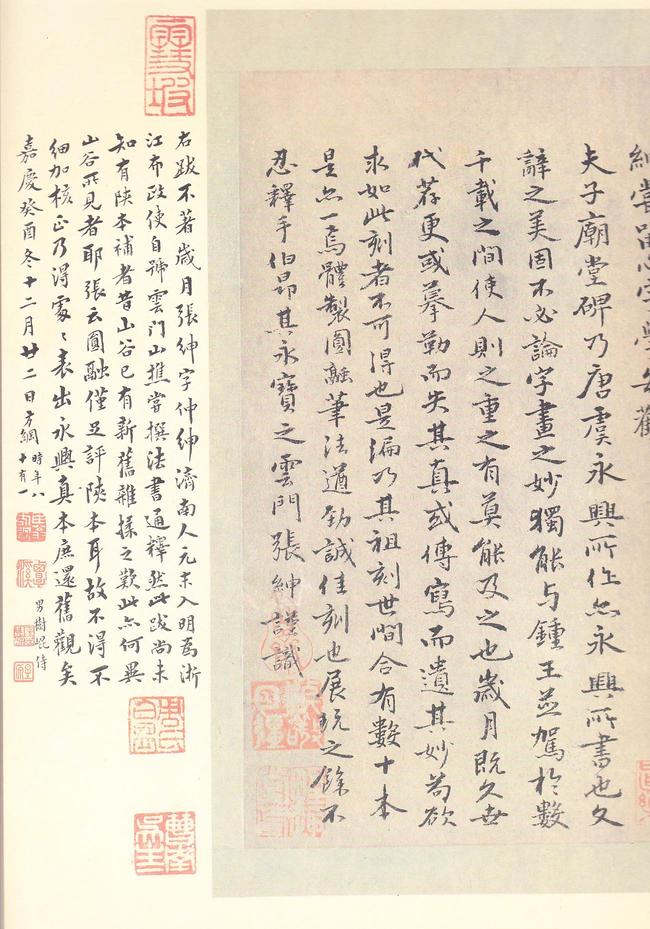 嘗留心字學每觀
夫子廟堂碑乃唐虞永興所作亦永興所書也文
辭之美固不必論字畫之妙獨能与鍾王並駕於數
千載之間使人則之重之有莫能及之也歲月既久世
代荐更或摹勒而失其真或傳寫而遺其妙苟欲
求如此刻者不可得也是編乃其祖刻世間合有數十本
是亦一焉體製圓融筆法遒勁誠佳刻也展玩之餘不
忍釋手伯昂其永寶之雲門張紳謹識
右跋不著歲月張紳字仲紳濟南人元末入明為浙
江布政使自號雲門山樵嘗撰法書通釋然此跋尚未
知有陝本補者昔山谷已有新舊雜揉之歎此亦何異
山谷所見者耶張云圓融僅足評陝本耳故不得不
細加核正乃得處〻表出永興真本庶還舊觀矣
嘉慶癸酉冬十二月廿二日方綱時年八
十有一
男樹崐侍